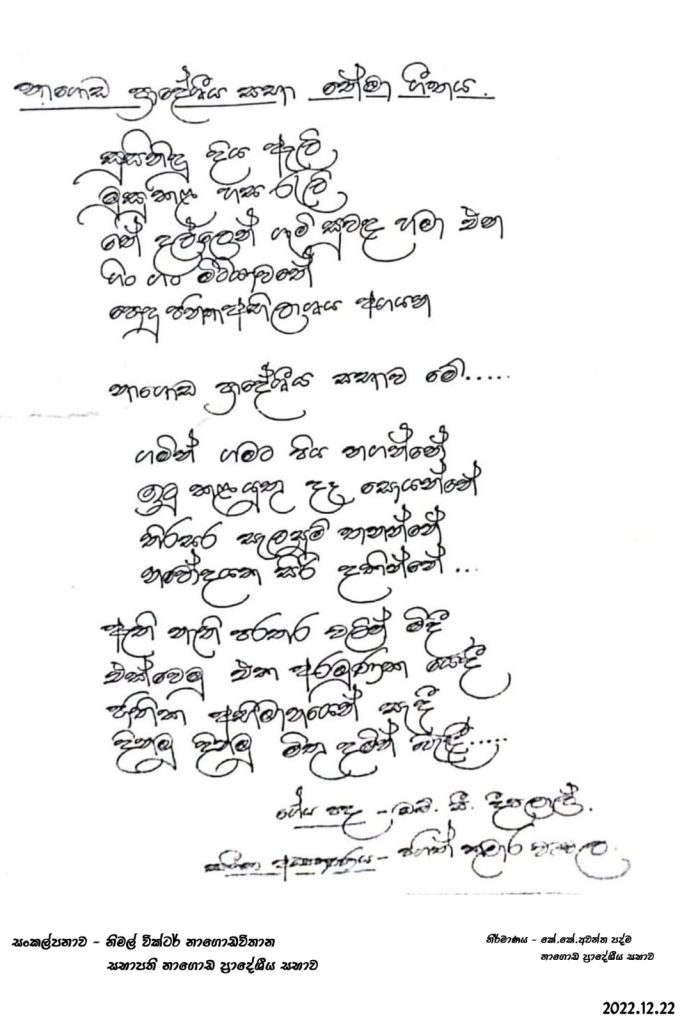 නාගොඩ ප්‍රාදේශීය සභා තේමා ගීතය.
සුසිනිඳු දිය ඇලි
මුසුකළ හස රැලි
තේ දල්ලෙන් ගුම් සුවඳ හමා එන
ගිං ගං මිටියාවතේ
පොදු ජනතා අභිලාශය අගයන
නාගොඩ ප්‍රාදේශීය සභාව මේ.....
ගමින් ගමට පිය නගන්නේ
ඉටු කළයුතු දෑ සොයන්නේ
තිරසර සැලසුම් තනන්නේ
නවෝදයක සිරි දකින්නේ ...
ඇති නැති පරතර වලින් මිදී
එක්වෙමු එක අරමුණක යෙදී
ජාතික අභිමානයෙන් සැදී
දිනමු දිනමු මිතු දමින් බැඳී.....
ගේය පද - සී. දීපලාල්.
සංගීත - ජගත් කුමාර
සංකල්පනාව - නිමල් වික්ටර් නාගොඩවිතාන
සභාපති නාගොඩ ප්‍රාදේශීය සභාව
නිර්මාණය - කේ.කේ.අවන්ත පද්ම
නාගොඩ ප්‍රාදේශීය සභාව
2022.12.22